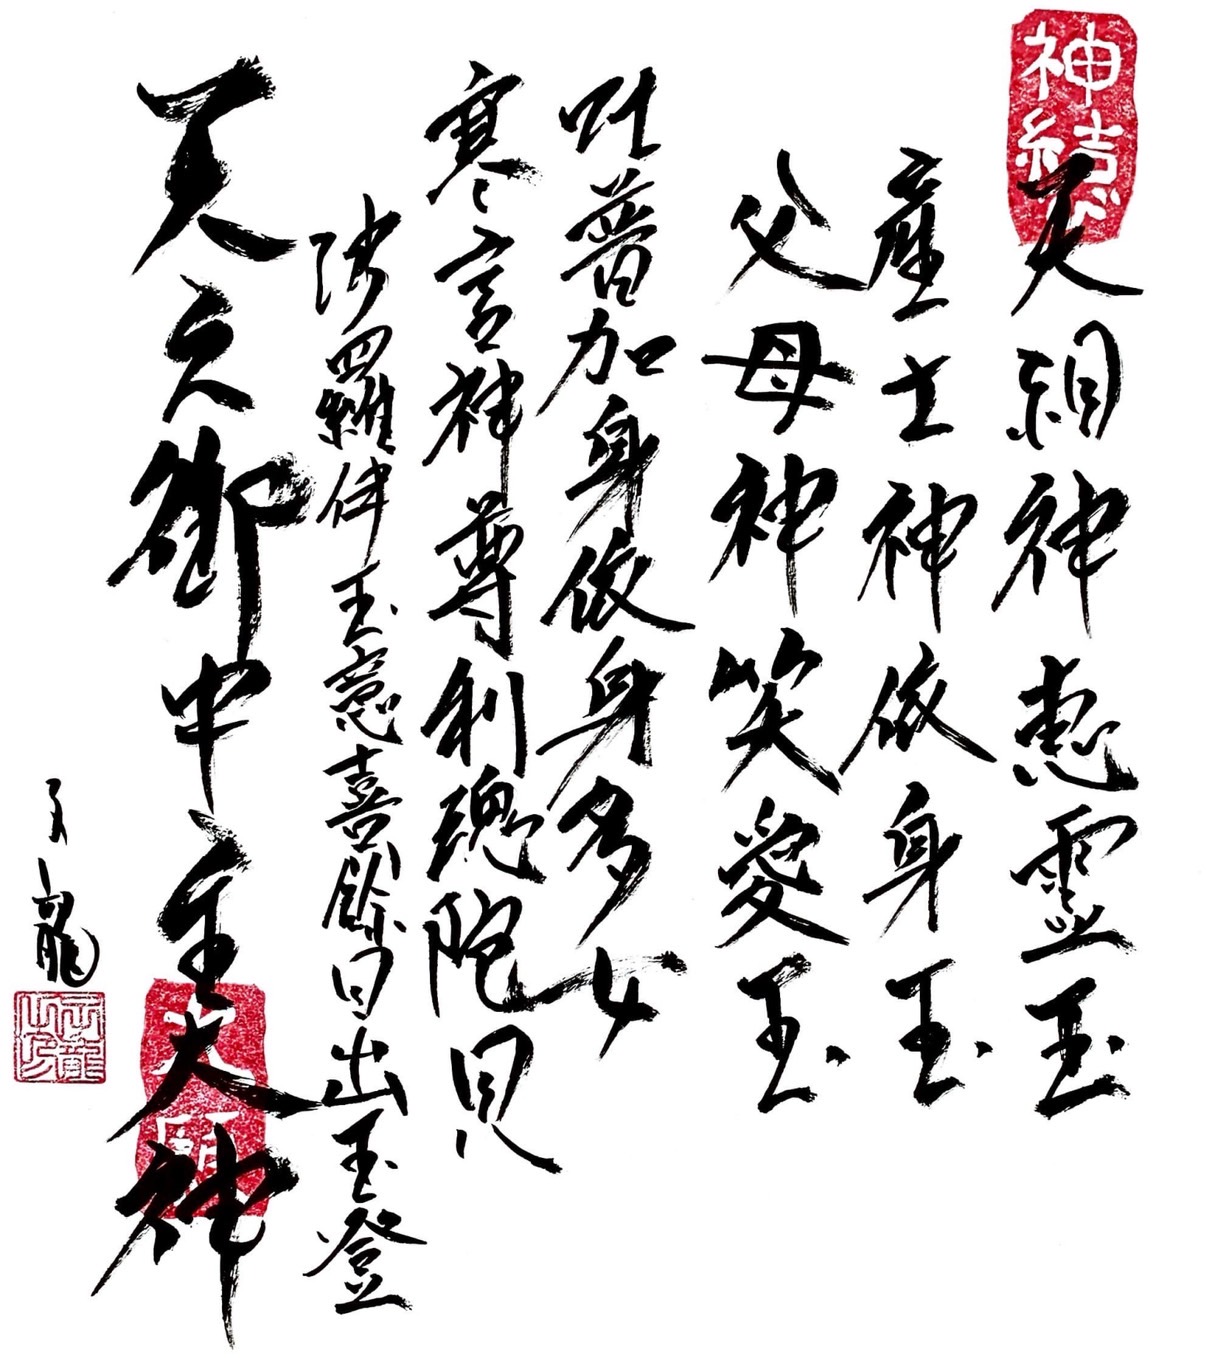 神結び
天神恵霊玉
産土神依身玉
父母神笑愛玉
吐普加身依身多女
寒言神尊利魂陀見
波羅伊玉意喜餘目出玉登
天之御中主大神
龍